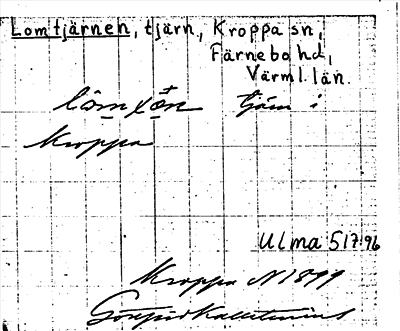 Lomtjärnen, tjärn, Kroppa sn,
Färnebo hd,
Värml. län.
tjärn i
Kroppa
Ulma 517:96
Kroppa N 1899